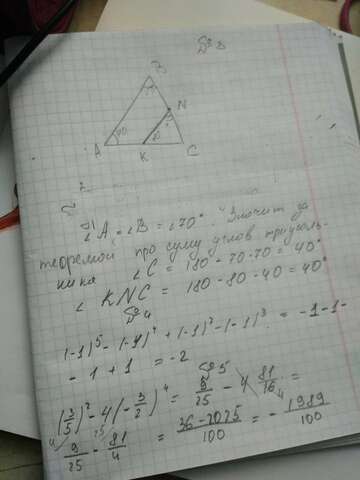 B
N
A
70
K
C
∠A = ∠B = ∠70°. Значит за
теоремой про суму углов триуголь-
ника ∠C = 180 - 70 - 70 = 40°
∠KNC = 180 - 80 - 40 = 40°
№4
(-1)⁵ - (-1)⁴ + (-1)² - (-1)³ = -1 - 1 -
- 1 + 1 = -2
№5
(3/5)² - 4(-3/2)⁴ = 9/25 - 4 81/16 =
9/25 - 81/4 = 36-2025/100 = - 1989/100